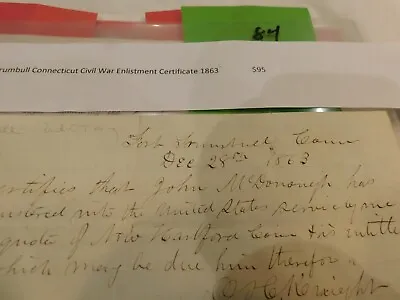 84
rumbull Connecticut Civil War Enlistment Certificate 1863 $95
Fort Trumbull Conn
Dec 28th 1863
ertifies that John McDonough has
ustered into the United States service
quota of New Hartford Conn & is entitle
which may be due him therefor